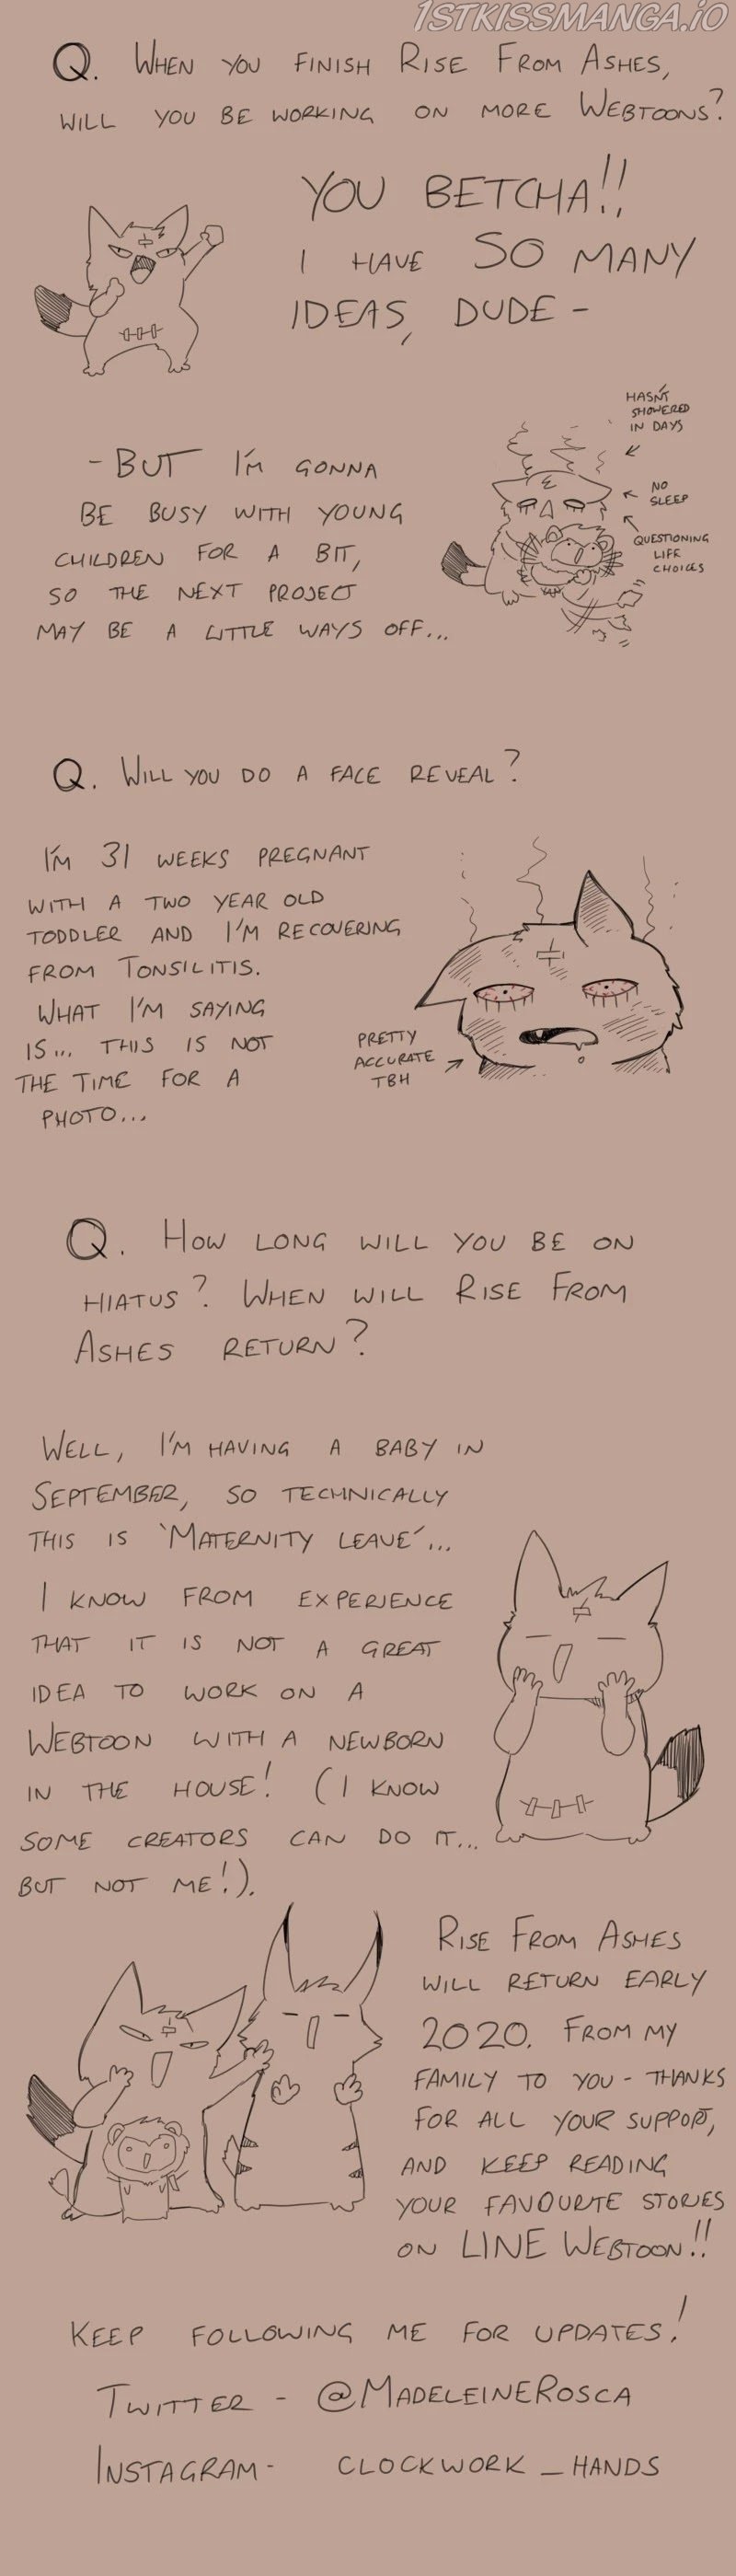 1STKISSMANGA.iO
Q. WHEN YOU FINISH RISE FROM ASHES,
WILL YOU BE WORKING ON MORE WEBTOONS?
YOU BETCHA!!
I HAVE SO MANY
IDEAS, DUDE -
HASN'T
SHOWERED
IN DAYS
NO
SLEEP
QUESTIONING
LIFE
CHOICES
- BUT I'M GONNA
BE BUSY WITH YOUNG
CHILDREN FOR A BIT,
SO THE NEXT PROJECT
MAY BE A LITTLE WAYS OFF...
Q. WILL YOU DO A FACE REVEAL?
I'M 31 WEEKS PREGNANT
WITH A TWO YEAR OLD
TODDLER AND I'M RECOVERING
FROM TONSILITIS.
WHAT I'M SAYING
IS... THIS IS NOT
THE TIME FOR A
PHOTO...
PRETTY
ACCURATE
TBH
Q. HOW LONG WILL YOU BE ON
HIATUS? WHEN WILL RISE FROM
ASHES RETURN?
WELL, I'M HAVING A BABY IN
SEPTEMBER, SO TECHNICALLY
THIS IS 'MATERNITY LEAVE'...
I KNOW FROM EXPERIENCE
THAT IT IS NOT A GREAT
IDEA TO WORK ON A
WEBTOON WITH A NEWBORN
IN THE HOUSE! (I KNOW
SOME CREATORS CAN DO IT...
BUT NOT ME!).
RISE FROM ASHES
WILL RETURN EARLY
2020. FROM MY
FAMILY TO YOU - THANKS
FOR ALL YOUR SUPPORT,
AND KEEP READING
YOUR FAVOURITE STORIES
ON LINE WEBTOON!!
KEEP FOLLOWING ME FOR UPDATES!
TWITTER - @MADELEINEROSCA
INSTAGRAM - CLOCKWORK_HANDS